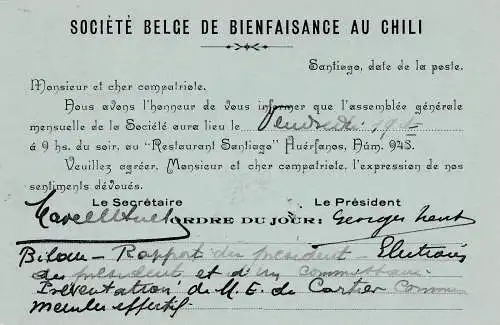 SOCIÉTÉ BELGE DE BIENFAISANCE AU CHILI
Santiago, date de la poste.
Monsieur et cher compatriote.
Nous avons l'honneur de vous informer que l'assemblée générale
mensuelle de la Société aura lieu le Vendredi
à 9 hs. du soir, au "Restaurant Santiago" Huérfanos, Núm. 943.
Veuillez agréer, Monsieur et cher compatriote, l'expression de nos
sentiments dévoués.
Le Secrétaire Le Président
ORDRE DU JOUR: Georges
Bilan - Rapport du président - Elections
du président et d'un commissaire
Présentation de M. E. de Cartier comme
membre effectif